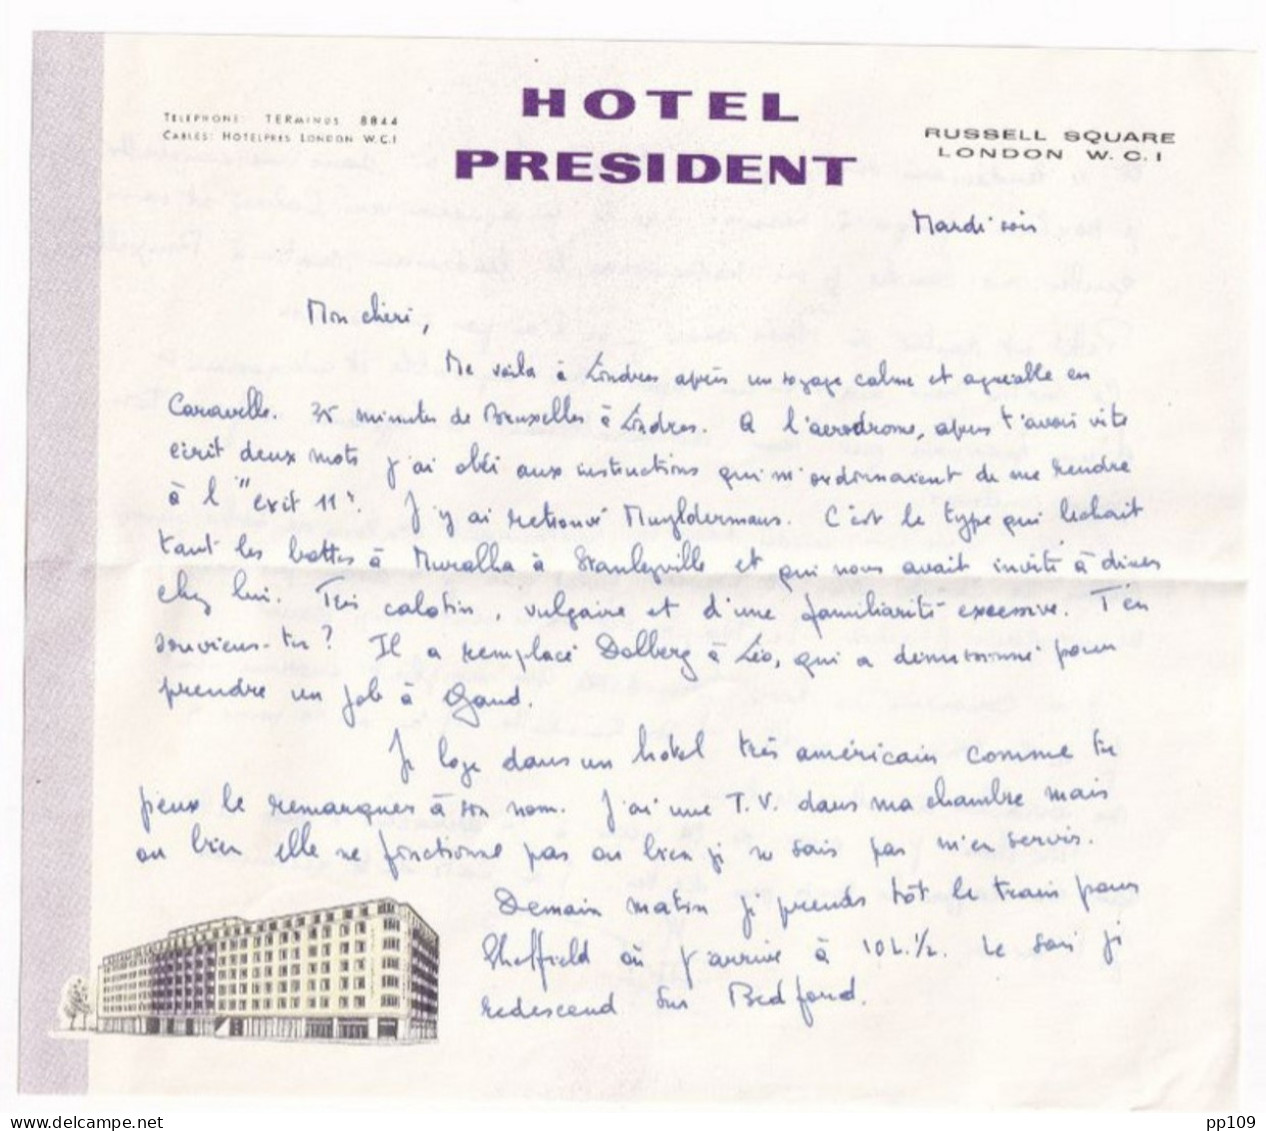 TELEPHONE: TERMINUS 8844
CABLES: HOTELPRES LONDON W.C.1
HOTEL
PRESIDENT
RUSSELL SQUARE
LONDON W.C.1
Mardi soir
Mon chéri,
Me voila à Londres après un voyage calme et agréable en
Caravelle. 35 minutes de Bruxelles à Londres. A l'aerodrome, apres t'avoir vite
écrit deux mots j'ai obéi aux instructions qui m'ordonnaient de me rendre
à l'"exit 11". J'y ai retrouvé Muyldermans. C'est le type qui léchait
tant les bottes à Muralha à Stanleyville et qui nous avait invité à diner
chez lui. Très calotin, vulgaire et d'une familiarité excessive. T'en
souviens-tu? Il a remplacé Dolberg à Léo, qui a démissionné pour
prendre un job à Gand.
Je loge dans un hotel très américain comme tu
peux le remarquer à son nom. J'ai une T.V. dans ma chambre mais
ou bien elle ne fonctionne pas ou bien je ne sais pas m'en servir.
Demain matin je prends tôt le train pour
Sheffield où j'arrive à 10h.1/2. Le soir je
redescend sur Bedford.
pp109